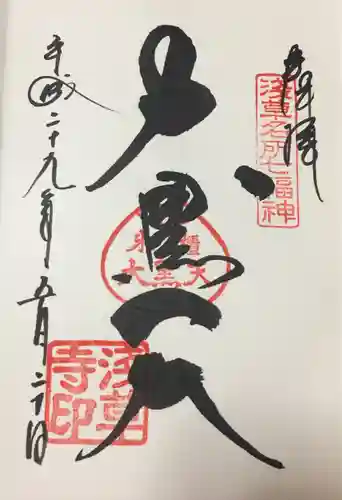 奉拝
浅草名所七福神
大黒天
米櫃
大黒天
浅草
寺印
平成二十九年五月二十日